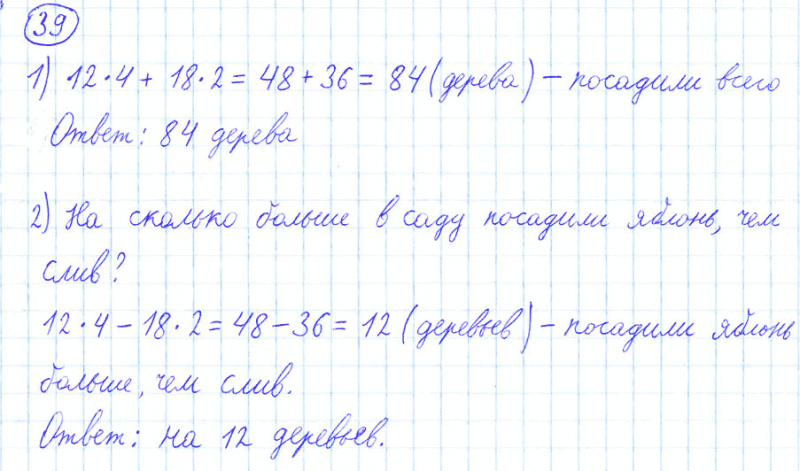 39
1) 12·4 + 18·2 = 48 + 36 = 84 (дерева) – посадили всего
Ответ: 84 дерева
2) На сколько больше в саду посадили яблонь, чем
слив?
12·4 – 18·2 = 48 – 36 = 12 (деревьев) – посадили яблонь
больше, чем слив.
Ответ: на 12 деревьев.